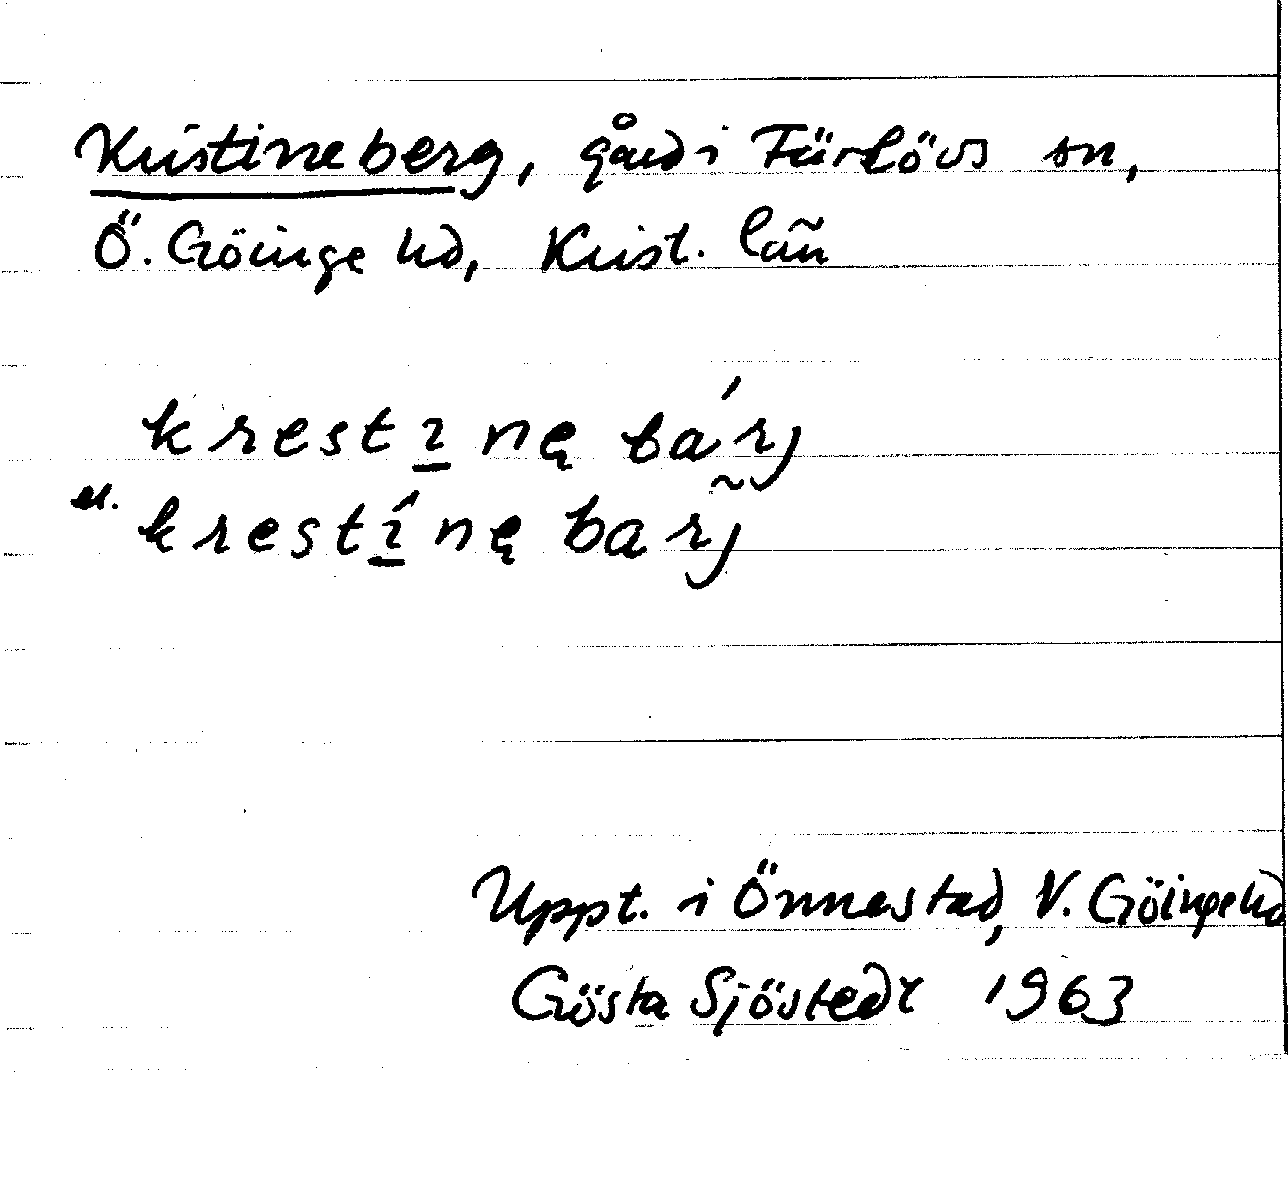 Kristineberg, gård i Färlövs sn,
Ö. Göinge hd, Krist. län
krestı̲nę bárj
el. krestı̲́nę barj̃
Uppt. i Önnestad, V. Göinge hd
Gösta Sjöstedt 1963